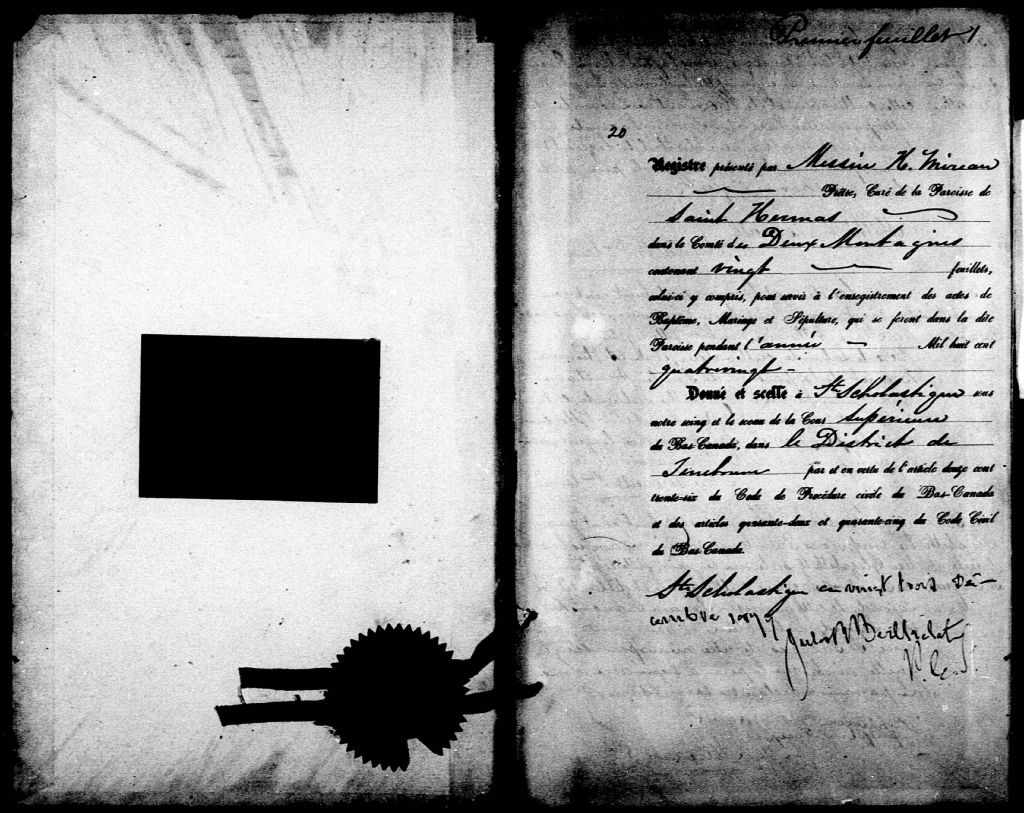 Premier feuillet 1
20
Registre présenté par Messire H. Mireau
Prêtre, Curé de la Paroisse de
Saint Hermas
dans le Comté des Deux Montagnes
contenant vingt feuillets,
celui-ci y compris, pour servir à l'enregistrement des actes de
Baptême, Mariage et Sépulture, qui se feront dans la dite
Paroisse pendant l'année Mil huit cent
quatrevingt -
Donné et scellé à Ste Scholastique sous
notre seing et le sceau de la Cour Supérieure
du Bas-Canada, dans le District de
Terrebonne par et en vertu de l'article douze cent
trente-six du Code de Procédure civile du Bas-Canada
et des articles quarante-deux et quarante-cinq du Code Civil
du Bas-Canada.
Ste Scholastique ce vingt trois Dé-
cembre